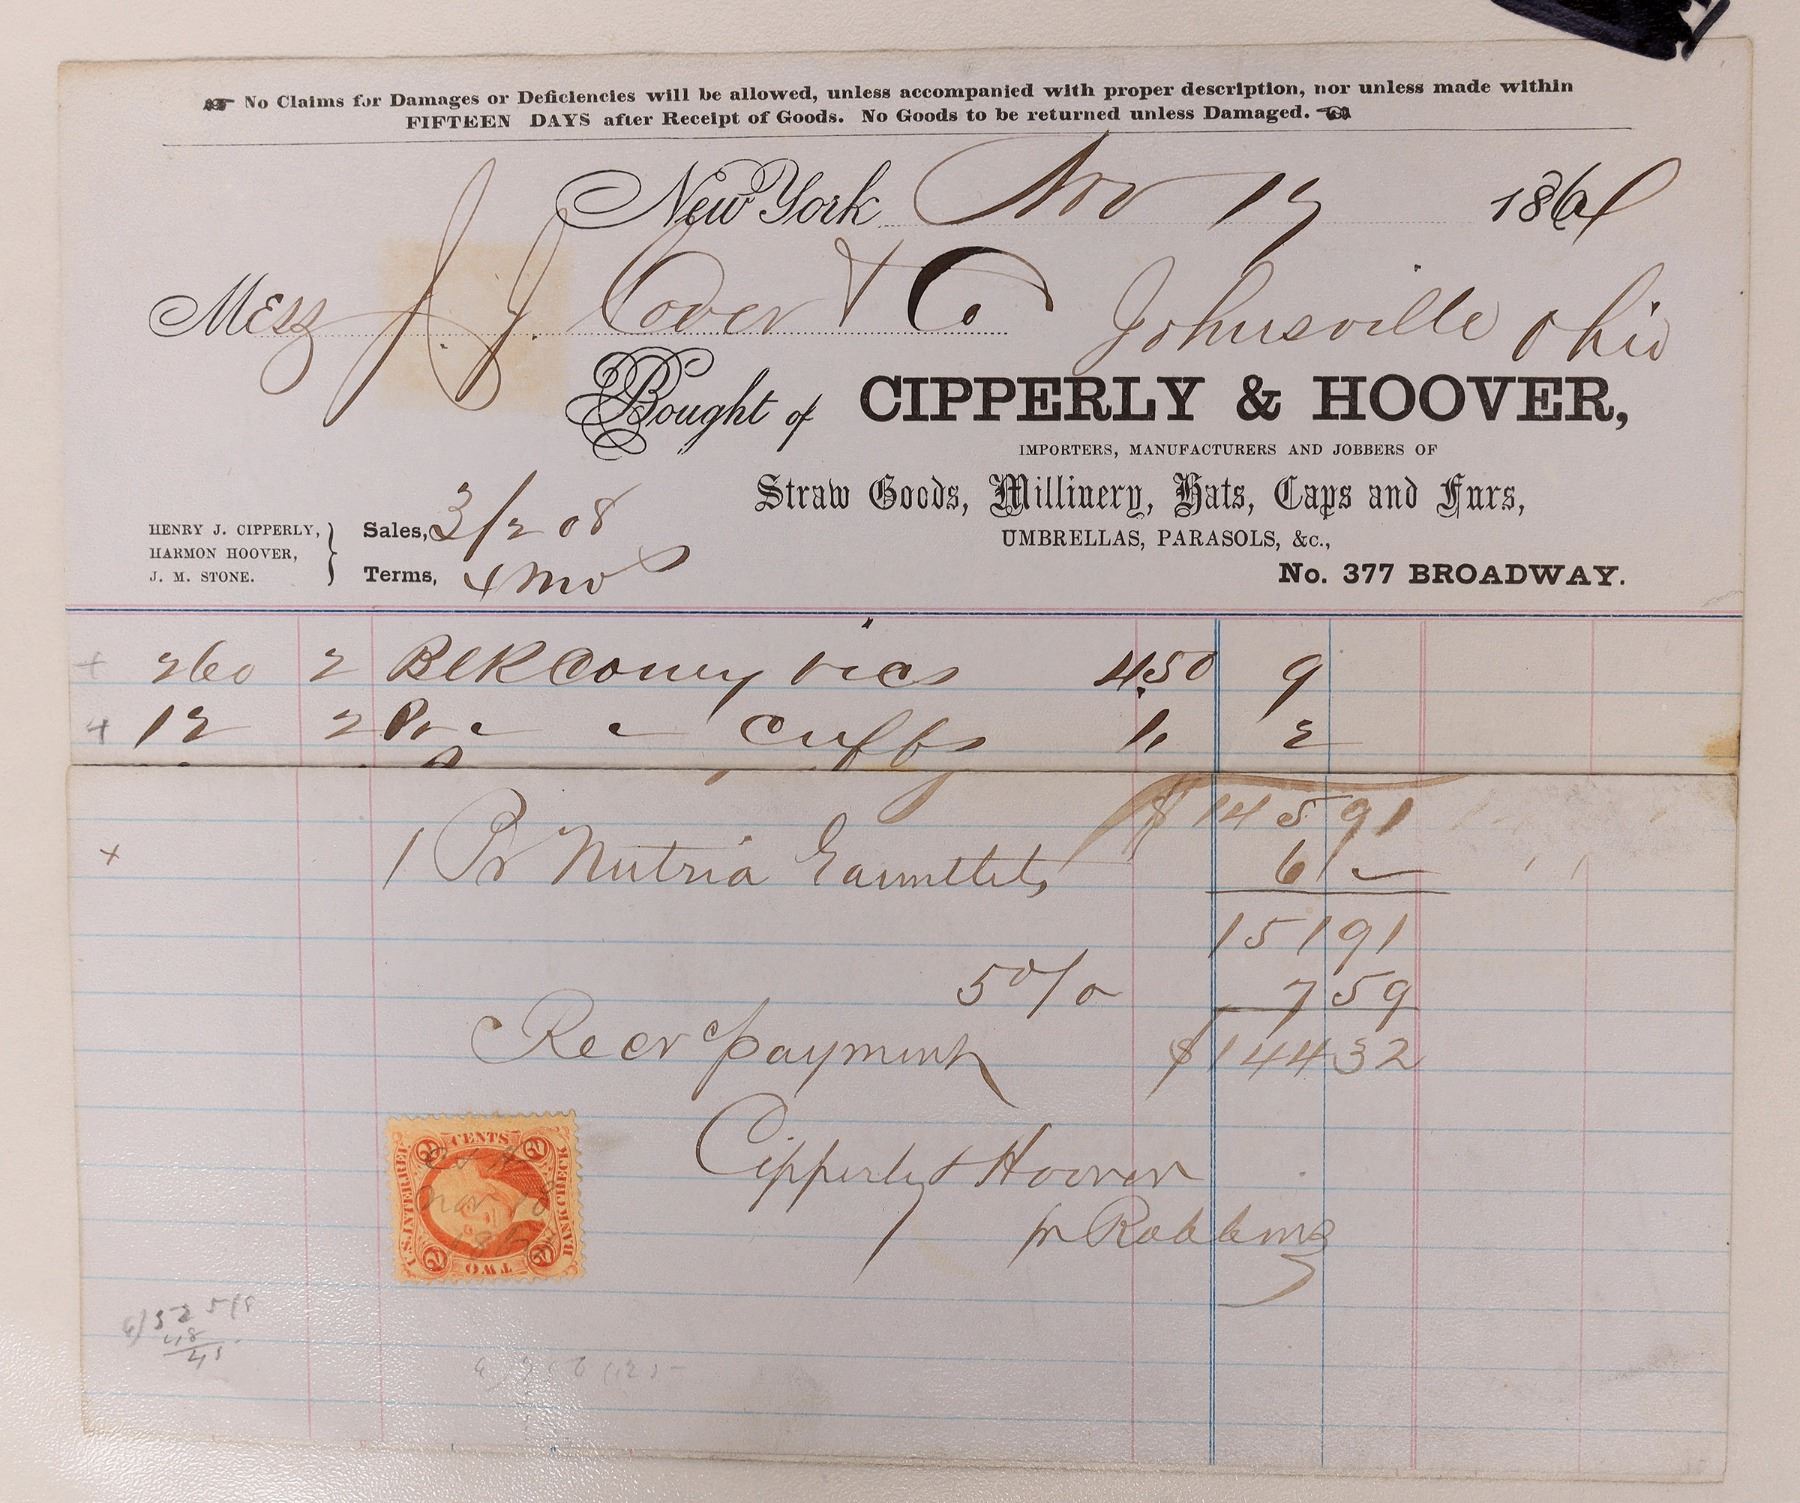 No Claims for Damages or Deficiencies will be allowed, unless accompanied with proper description, nor unless made within
FIFTEEN DAYS after Receipt of Goods. No Goods to be returned unless Damaged.
New York Nov 17 186
Mess J. J. Cover & Co. Johnsville Ohio
Bought of CIPPERLY & HOOVER,
IMPORTERS, MANUFACTURERS AND JOBBERS OF
Straw Goods, Millinery, Hats, Caps and Furs,
UMBRELLAS, PARASOLS, &c.,
No. 377 BROADWAY.
HENRY J. CIPPERLY,
HARMON HOOVER,
J. M. STONE.
Sales, 3/208
Terms, 4 mo
+ 260 2 Blk Coney Vics 4.50 9
+ 12 2 Pr " " Cuffs 1. 2
$ 145 91
+ 1 Pr Nutria Gauntlets 6 —
151 91
5 % 7 59
Recd payment $144 32
Cipperly & Hoover
pr Robbins
2 CENTS 2
U.S. INTER. REV.
BANK CHECK
2 TWO 2